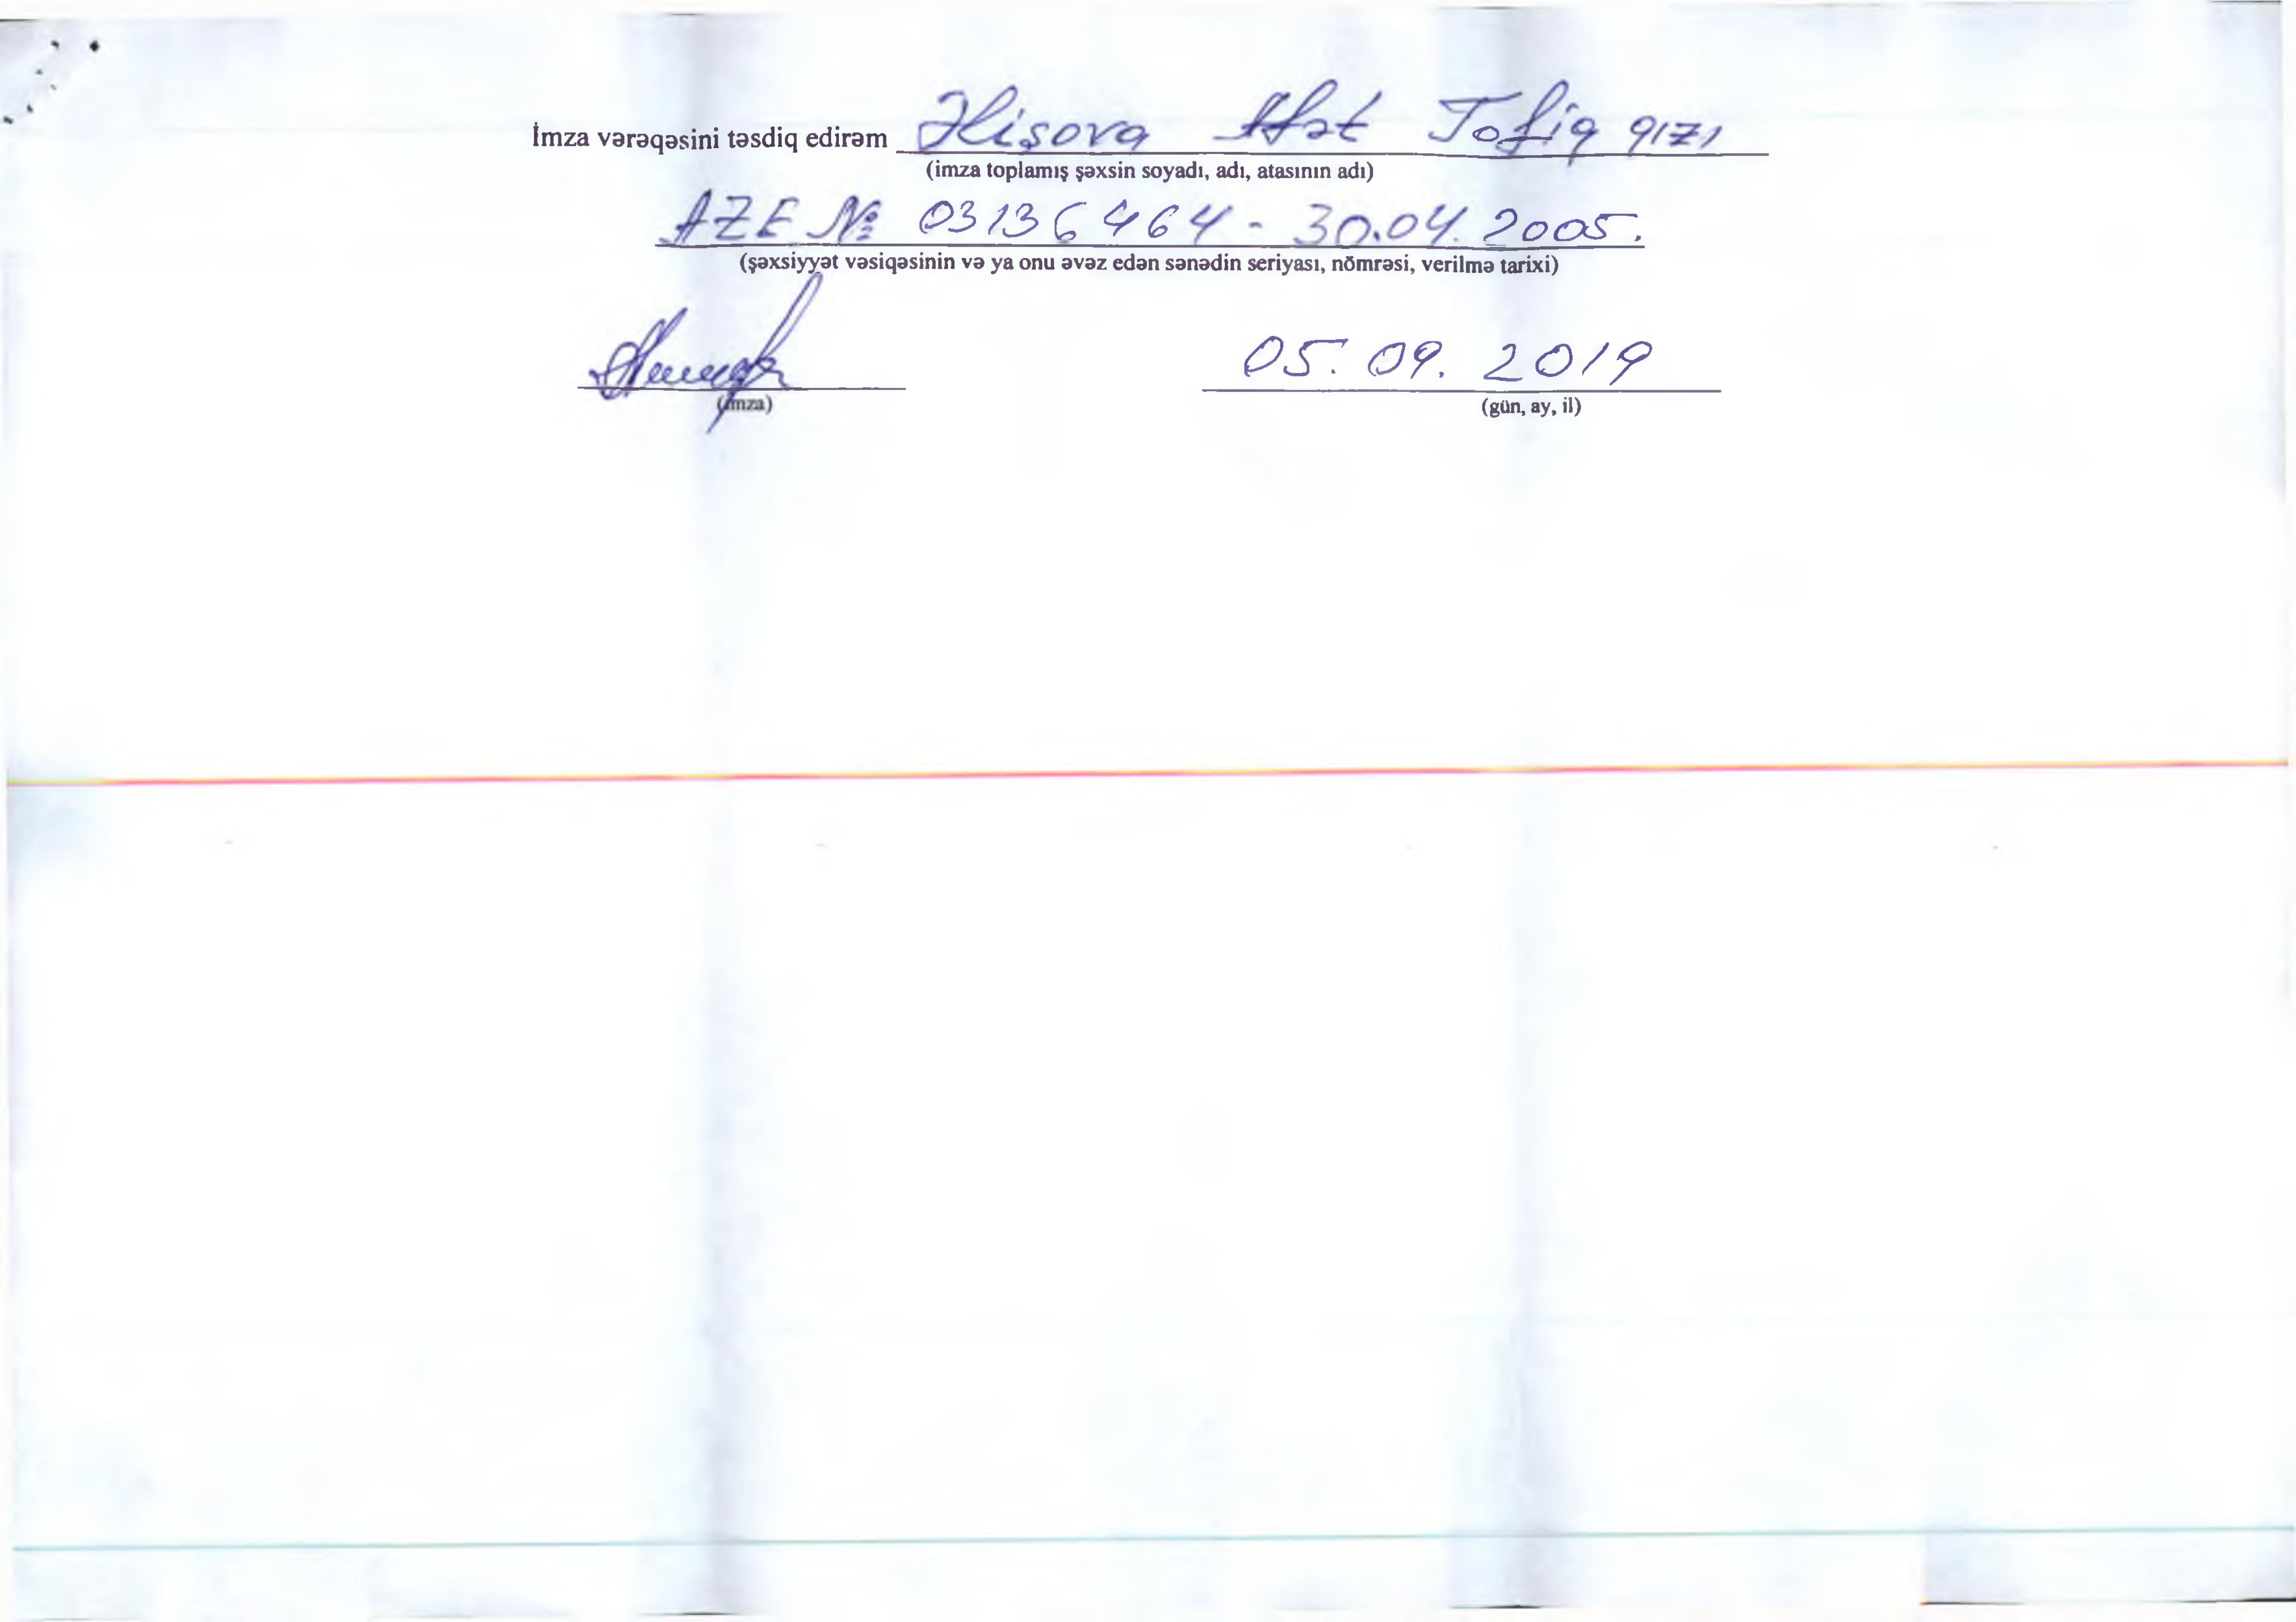 İmza vərəqəsini təsdiq edirəm Əlişova Tofiq qızı
(imza toplamış şəxsin soyadı, adı, atasının adı)
AZE № 03136464 - 30.04.2005.
(şəxsiyyət vəsiqəsinin və ya onu əvəz edən sənədin seriyası, nömrəsi, verilmə tarixi)
05.09.2019
(imza) (gün, ay, il)